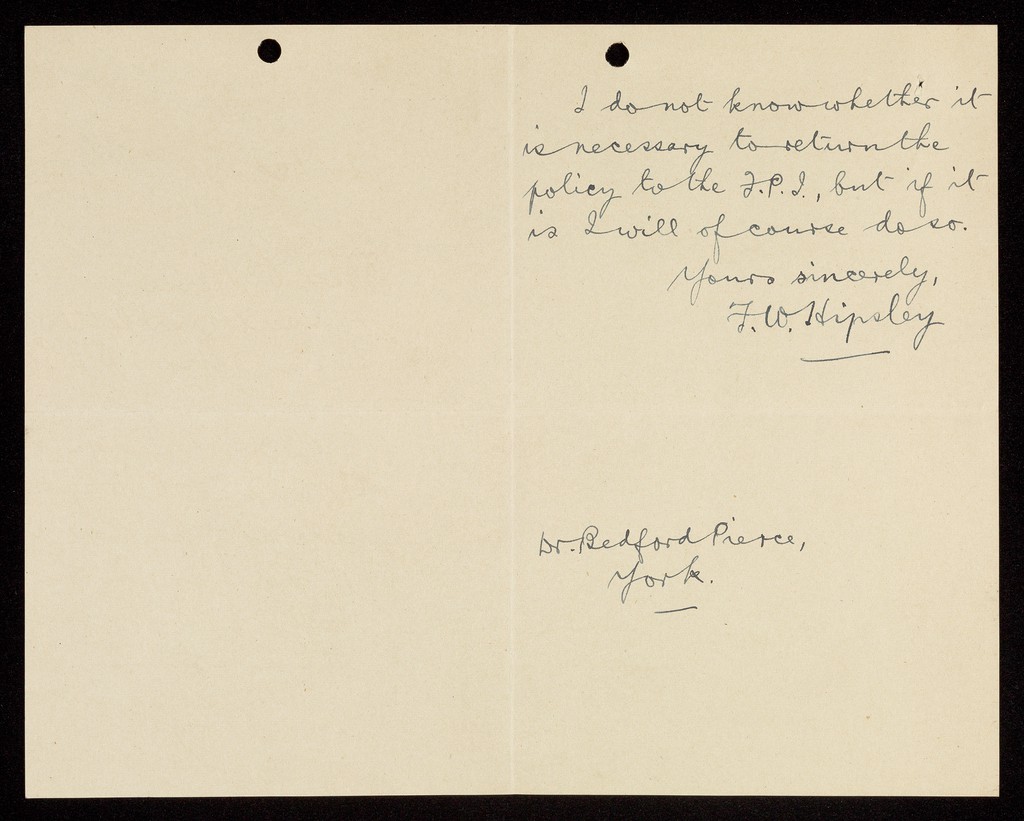 I do not know whether it
is necessary to return the
policy to the F.P.I., but if it
is I will of course do so.
Yours sincerely,
F.W. Hipsley
Dr. Bedford Pierce,
York.